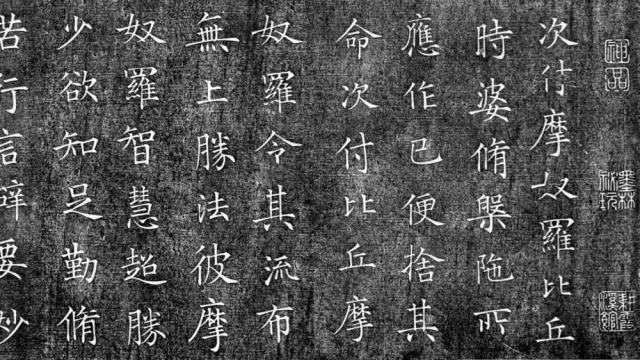 神品
墨林祕玩
耕霞溪館
次付摩奴羅比丘
時婆脩槃陁所
應作已便捨其
命次付比丘摩
奴羅令其流布
無上勝法彼摩
奴羅智慧超勝
少欲知足勤脩
苦行言辭要妙